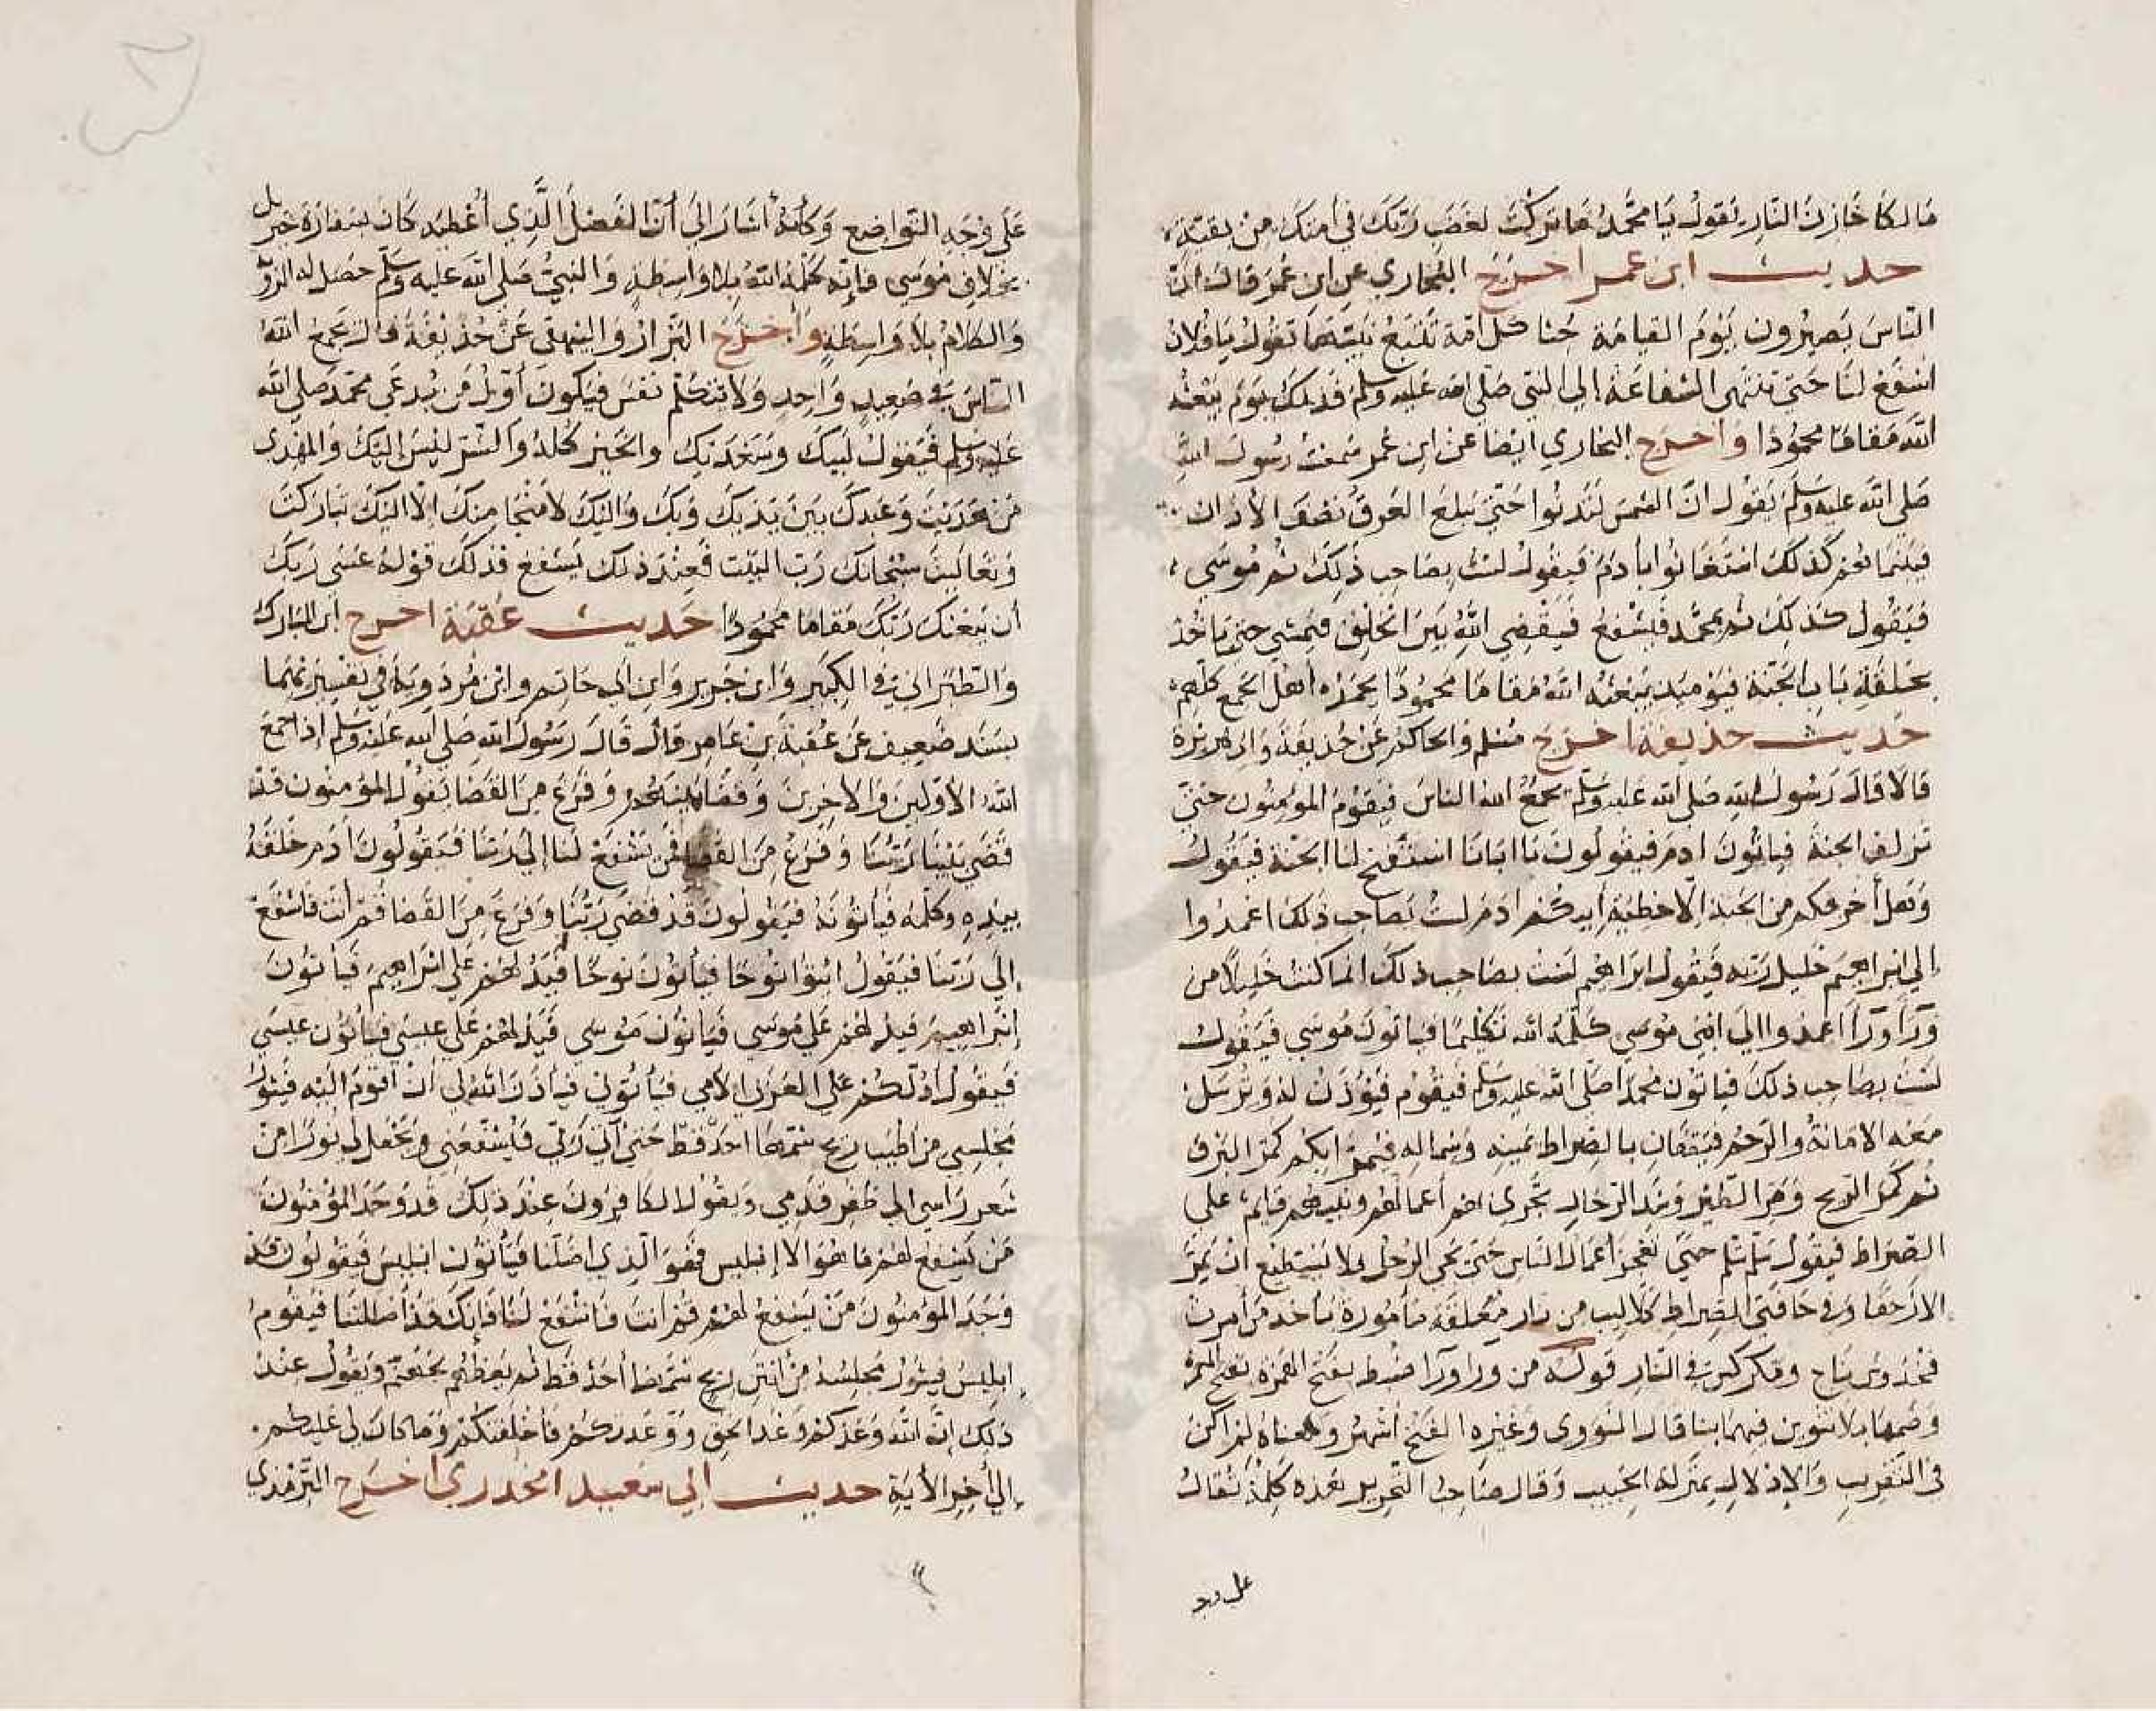 مالكا خازن النار يقول يا محمد ما تركت لغضب ربك في امتك من بقية
حديث ابن عمر اخرج البخاري عن ابن عمر قال ان
الناس يصيرون يوم القيامة جثا كل امة تتبع نبيها تقول يا فلان
اشفع لنا حتى تنتهي الشفاعة الي النبي صلى الله عليه وسلم فذلك يوم يبعثه
الله مقاما محمودا واخرج البخاري ايضا عن ابن عمر سمعت رسول الله
صلى الله عليه وسلم يقول ان الشمس لتدنوا حتى يبلغ العرق نصف الاذان
فبينما هم كذلك استغاثوا بأدم فيقول لست بصاحب ذلك ثم موسي
فيقول كذلك ثم محمد فيشفع فيقضي الله بين الخلق فيمشي حتى يأخذ
بحلقة باب الجنة فيومئذ يبعثه الله مقاما محمودا يحمده أهل الجمع كلهم
حديث حذيفة اخرج مسلم والحاكم عن حذيفة وابي هريرة
قالا قال رسول الله صلى الله عليه وسلم يجمع الله الناس فيقوم المؤمنون حتى
تزلف الجنة فياتون ادم فيقولون يا ابانا استفتح لنا الجنة فيقول
وهل أخرجكم من الجنة الا خطيئة أبيكم ادم لست بصاحب ذلك اعمدوا
إلي ابراهيم خليل ربه فيقول ابراهيم لست بصاحب ذلك انما كنت خليلا من
ورآ ورآ اعمدوا الي ابني موسى كلمه الله تكليما فياتون موسي فيقول
لست بصاحب ذلك فياتون محمدا صلى الله عليه وسلم فيقوم فيؤذن له وترسل
معه الامانة والرحم فيقفان بالصراط يمينه وشماله فيمر اولكم كمر البرق
ثم كمر الريح ومر الطير وشد الرحال تجري بهم أعمالهم ونبيكم قايم على
الصراط فيقول سلم سلم حتى تعجز أعمال الناس حتى يجي الرجل ولا يستطيع ان يمر
الا زحفا وفي حافتي الصراط كلاليب من نار معلقة مأمورة بأخد من أمرت
فمخدوش ناج ومكركس في النار قوله من ورا ورا ضبط بفتح الهمزة بفتح الهمزة
وضمها بلا تنوين فيهما بنا قال النووى وغيره الفتح أشهر ومعناه لم اكن
في التقريب والادلال بمنزلة الحبيب وقال صاحب التحرير هذه كلمة تقال
على وجه
على وجه التواضع وكأنه أشار إلى أن الفضل الذي أعطيه كان بسفارة جبريل
بخلاف موسى فإنه كلمه الله بلا واسطة والنبي صلى الله عليه وسلم حصل له الروية
والكلام بلا واسطة وأخرج البزار والبيهقي عن حذيفة قال يجمع الله
الناس في صعيد واحد ولا تتكلم نفس فيكون أول من يدعى محمد صلى الله
عليه وسلم فيقول لبيك وسعديك والخير كله والشر ليس اليك والمهدي
من هديت وعبدك بين يديك وبك واليك لا منجا منك الا اليك تباركت
وتعاليت سبحانك رب البيت فعند ذلك يشفع فذلك قوله عسى ربك
أن يبعثك ربك مقاما محمودا حديث عقبة اخرج ابن المبارك
والطبراني في الكبير وابن جرير وابن ابي حاتم وابن مردويه في تفسيريهما
بسند ضعيف عن عقبة بن عامر قال قال رسول الله صلى الله عليه وسلم إذا جمع
الله الأولين والاخرين وقضا بينهم وفرغ من القضا يقول المؤمنون قد
قضي بيننا ربنا وفرغ من القضا فمن يشفع لنا إلي ربنا فيقولون أدم خلقه
بيده وكلمه فيأتونه فيقولون قد قضى ربنا وفرغ من القضا قم أنت فاشفع
إلي ربنا فيقول ائتوا نوحا فيأتون نوحا فيدلهم علي ابراهيم فيأتون
إبراهيم فيدلهم علي موسي فيأتون موسى فيدلهم على عيسى فيأتون عيسى
فيقول أدلكم علي العربي الامي فيأتوني فيأذن الله لي أن أقوم اليه فيثور
مجلسي من أطيب ريح شمها احد قط حتى آتي ربي فيشفعني ويجعل لي نورا من
شعر راسي الي ظفر قدمي ويقول الكافرون عند ذلك قد وجد المؤمنون
من يشفع لهم ما هو الا إبليس فهو الذي اضلنا فيأتون ابليس فيقولون قد
وجد المؤمنون من يشفع لهم قم انت فاشفع لنا فإنك قد أضللتنا فيقوم
ابليس فيثور مجلسه من أنتن ريح شمها أحد قط ثم يعظهم بجهنم ويقول عند
ذلك إن الله وعدكم وعد الحق ووعدتكم فأخلفتكم وما كان لي عليكم
إلي أخر الأية حديث أبي سعيد الخدري اخرج الترمذي